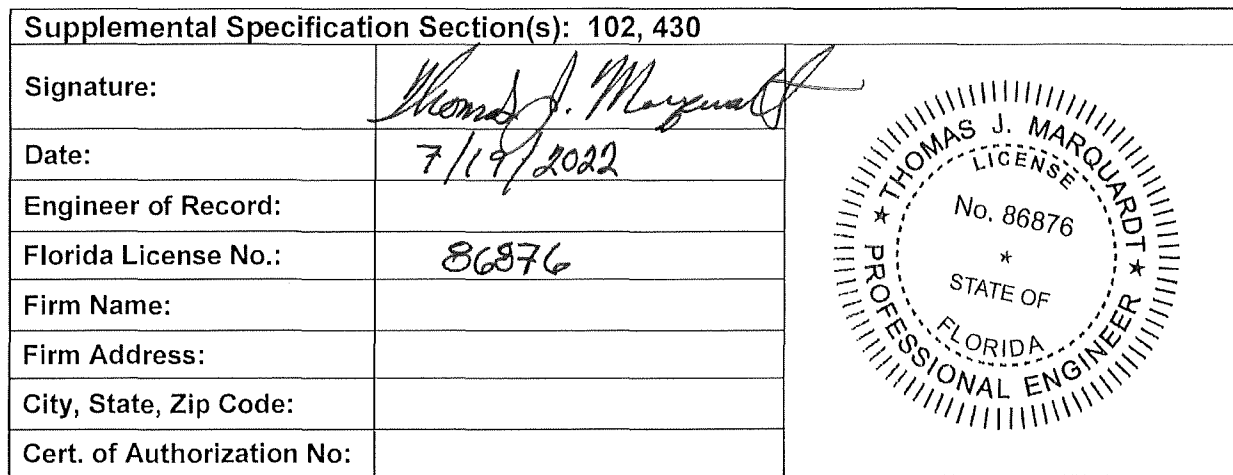 Supplemental Specification Section(s): 102, 430
Signature: Thomas J. Marquardt
Date: 7/19/2022
Engineer of Record:
Florida License No.: 86876
Firm Name:
Firm Address:
City, State, Zip Code:
Cert. of Authorization No:
THOMAS J. MARQUARDT
LICENSE
No. 86876
*
STATE OF
FLORIDA
* PROFESSIONAL ENGINEER *